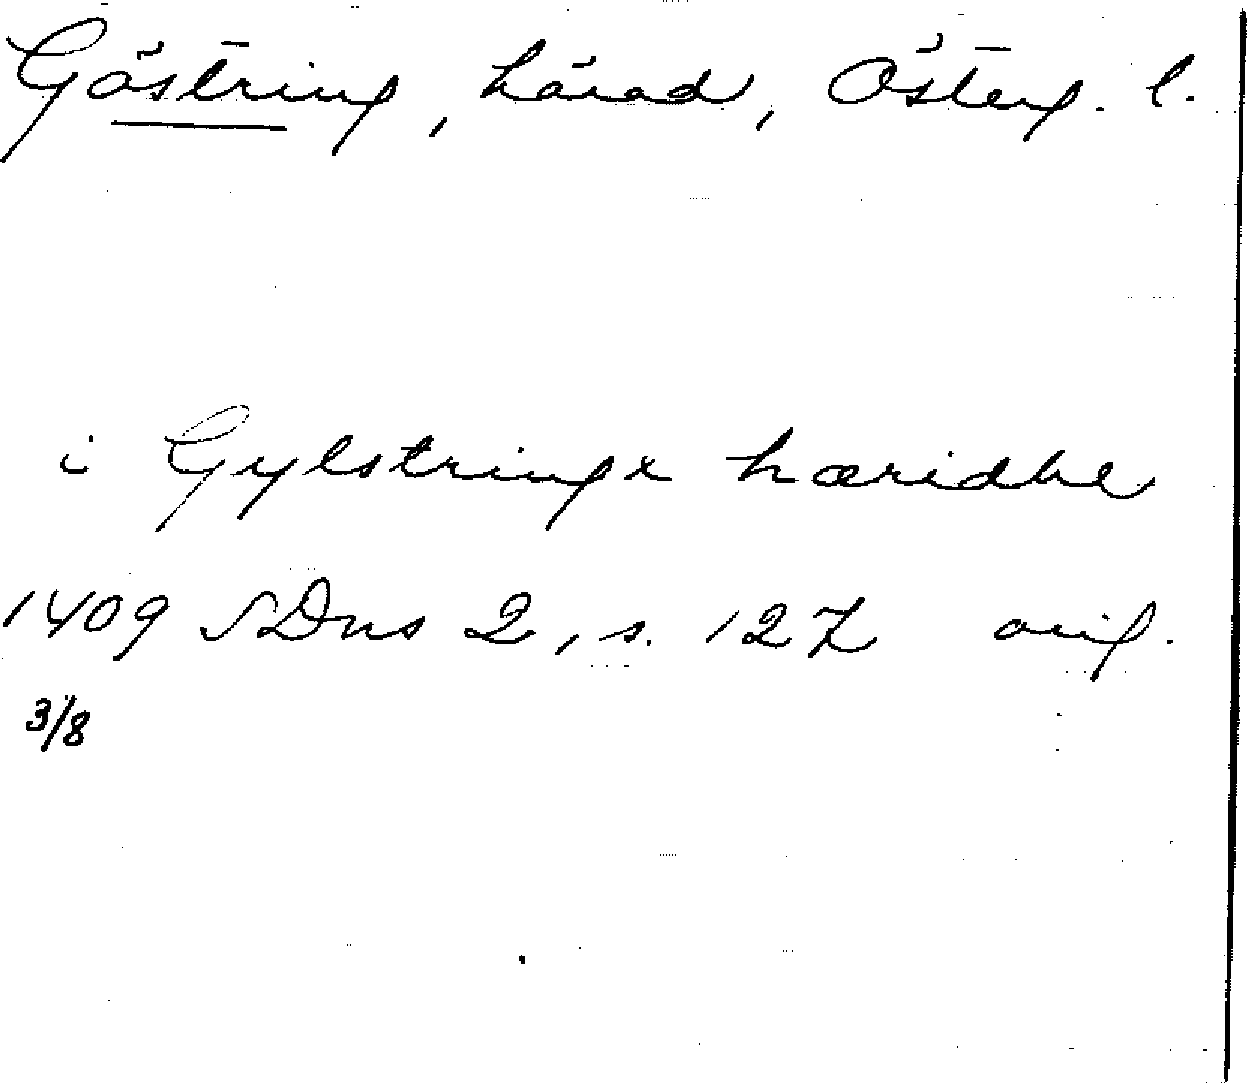 Göstring, härad, Österg. l.
i Gylstringx hæridhe
1409 SDns 2, s. 127 orig.
3/8